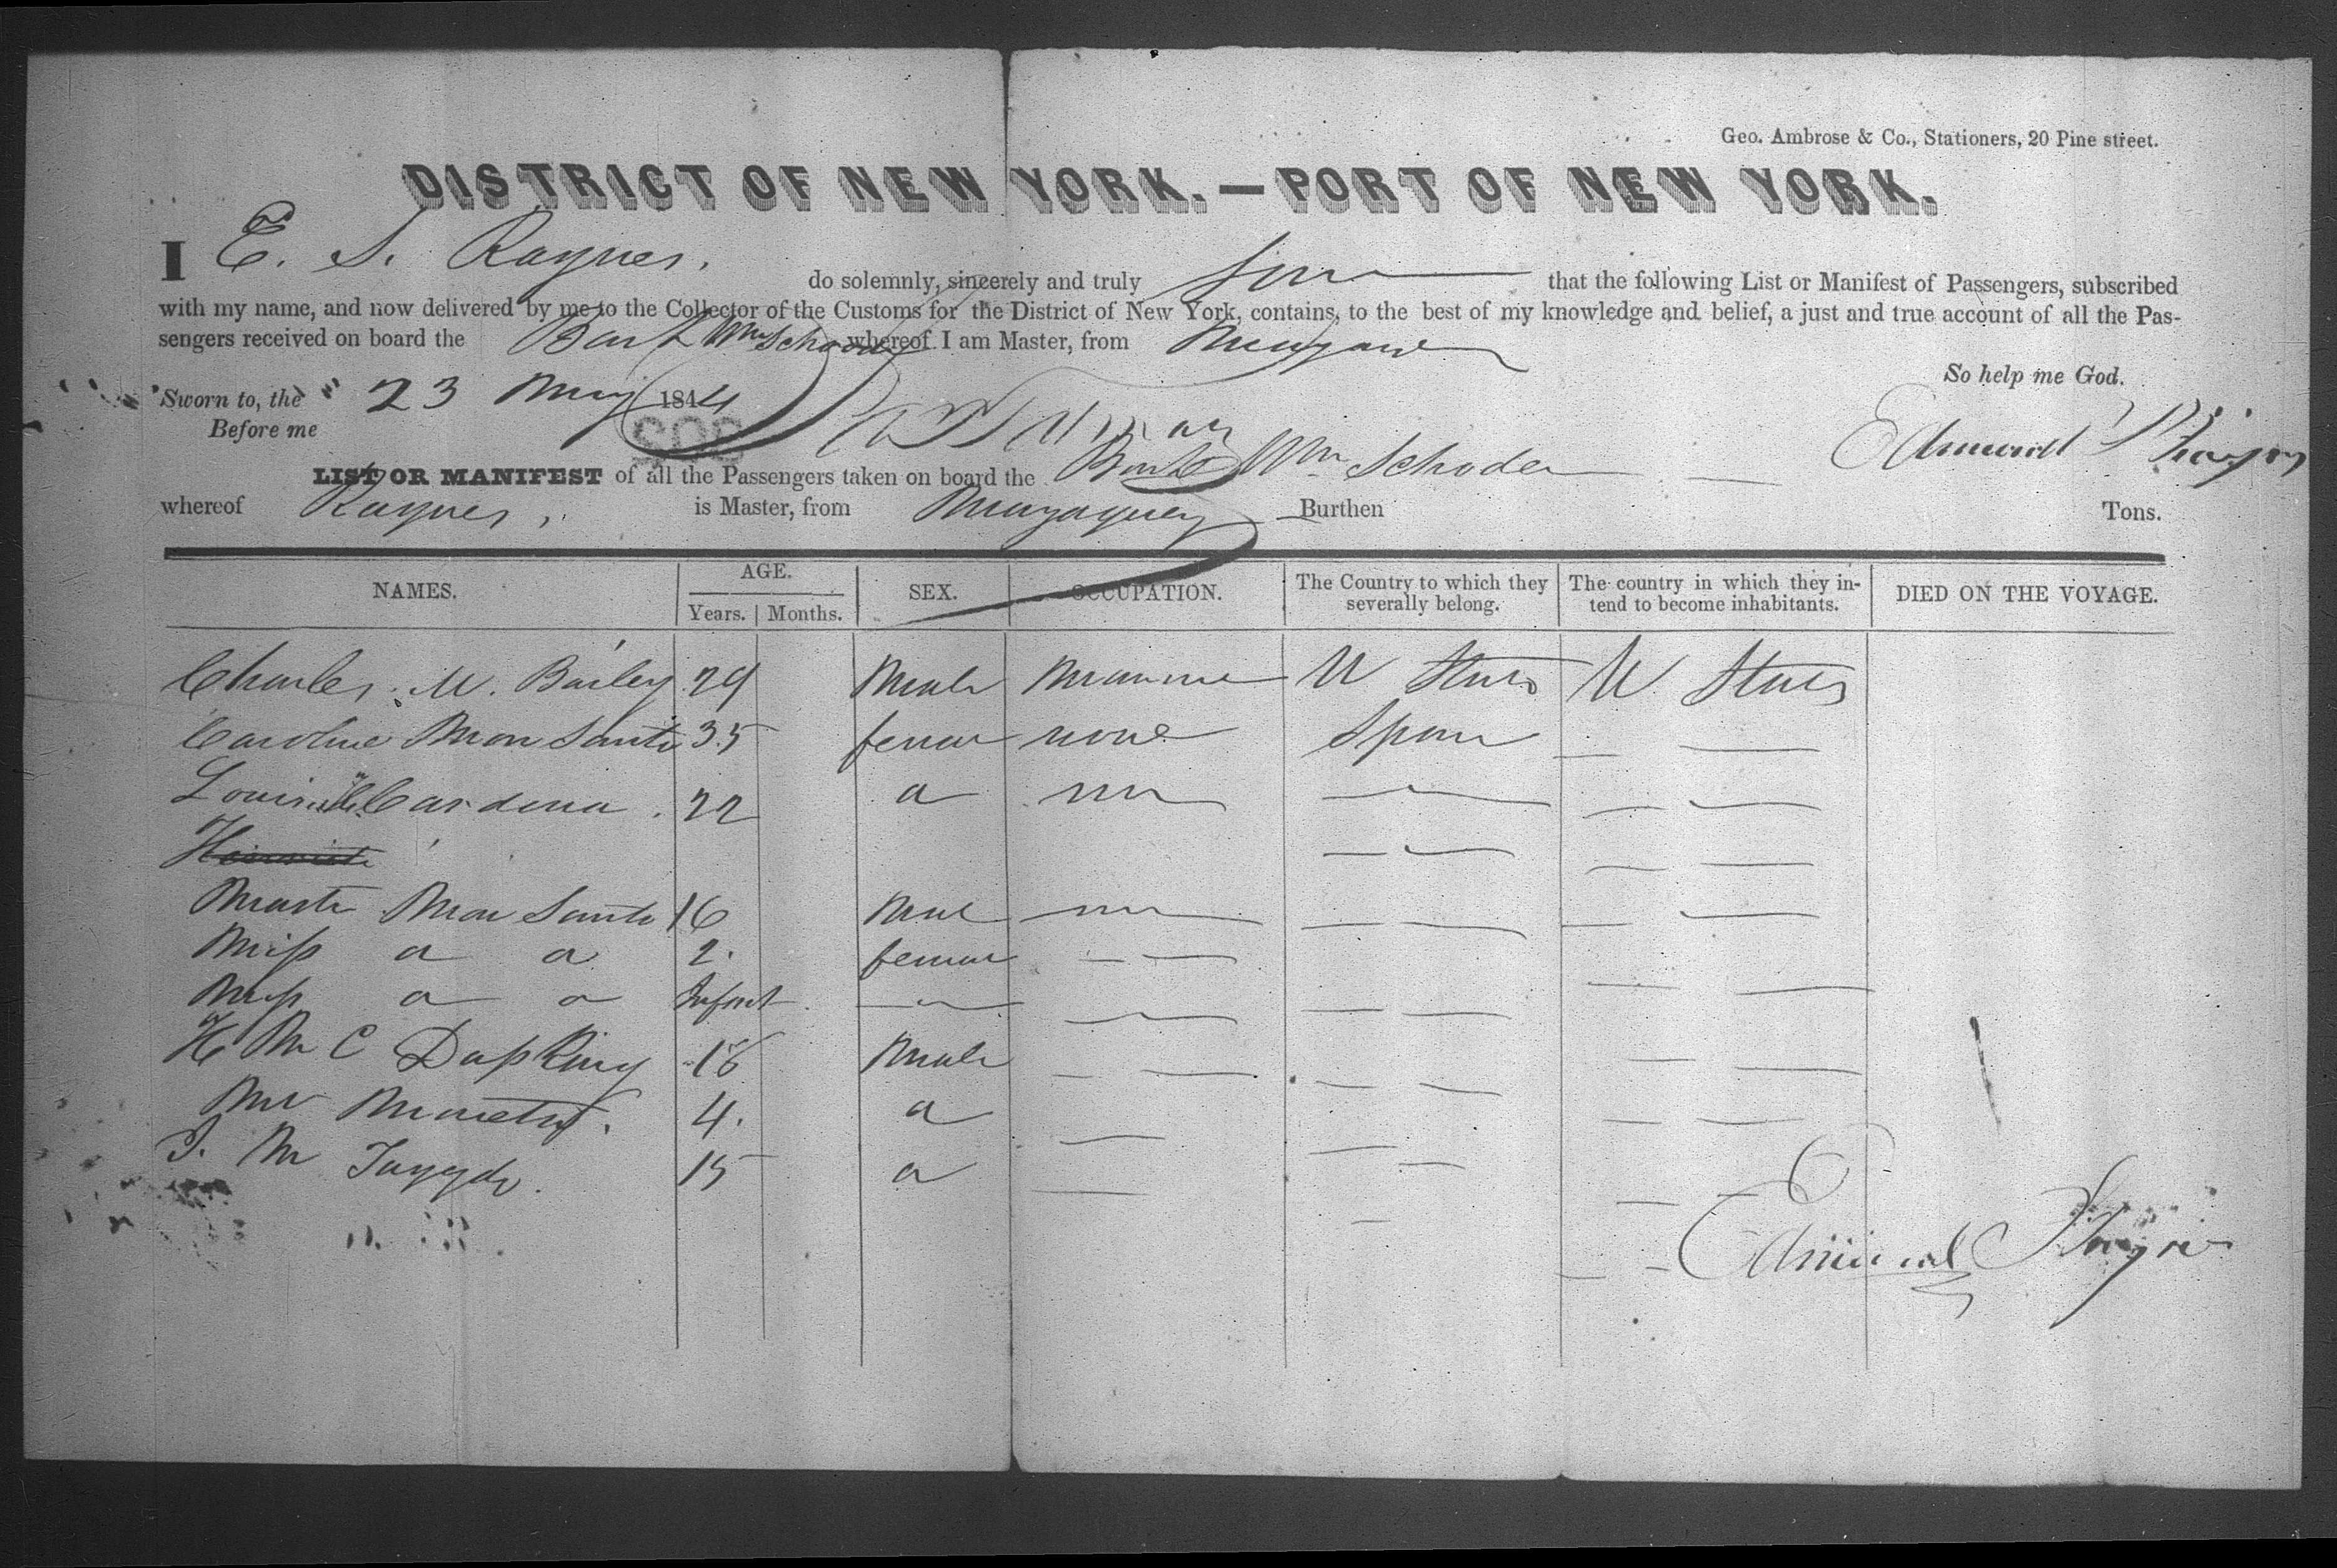 Geo. Ambrose & Co., Stationers, 20 Pine street.
DISTRICT OF NEW YORK.—PORT OF NEW YORK.
I E. S. Raynes, do solemnly, sincerely and truly that the following List or Manifest of Passengers, subscribed
with my name, and now delivered by me to the Collector of the Customs for the District of New York, contains, to the best of my knowledge and belief, a just and true account of all the Pas-
sengers received on board the Bark Wm whereof I am Master, from
So help me God.
Sworn to, the 23 May 1844
Before me
Edmund
LIST OR MANIFEST of all the Passengers taken on board the Bark Wm Schroder
whereof Raynes, is Master, from Burthen Tons.
NAMES. AGE. Years. Months. SEX. OCCUPATION. The Country to which they severally belong. The country in which they intend to become inhabitants. DIED ON THE VOYAGE.
Charles M. Bailey 29 Male U States U States
Caroline Mon Santo 35 female none Spain
Cardona 22
Mon Santo 16 Male
Miss 2. female
Miss Infant
H M C 18 Male
Mr 4.
J. M 15
Edmund